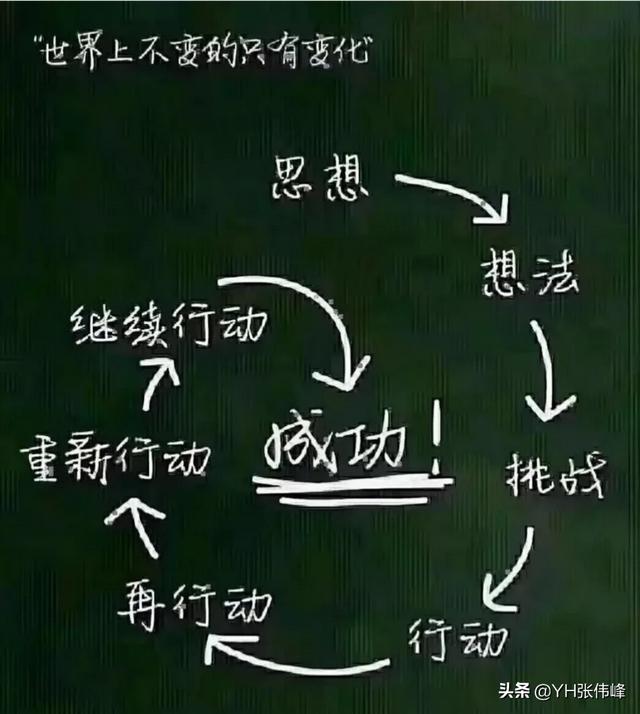 “世界上不变的只有变化”
思想
想法
挑战
行动
再行动
重新行动
继续行动
成功！
头条 @YH张伟峰